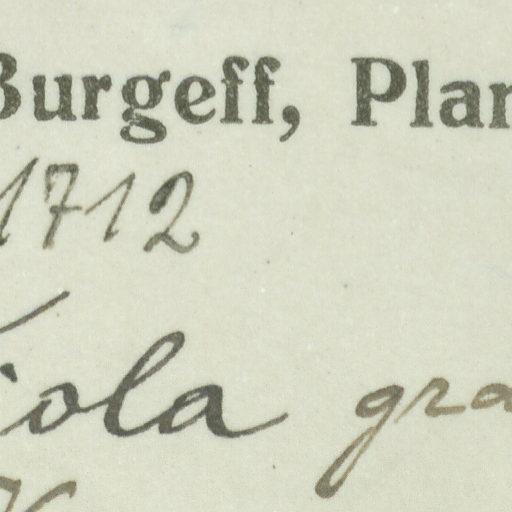 Burgeff, Plan
1712
iola gra